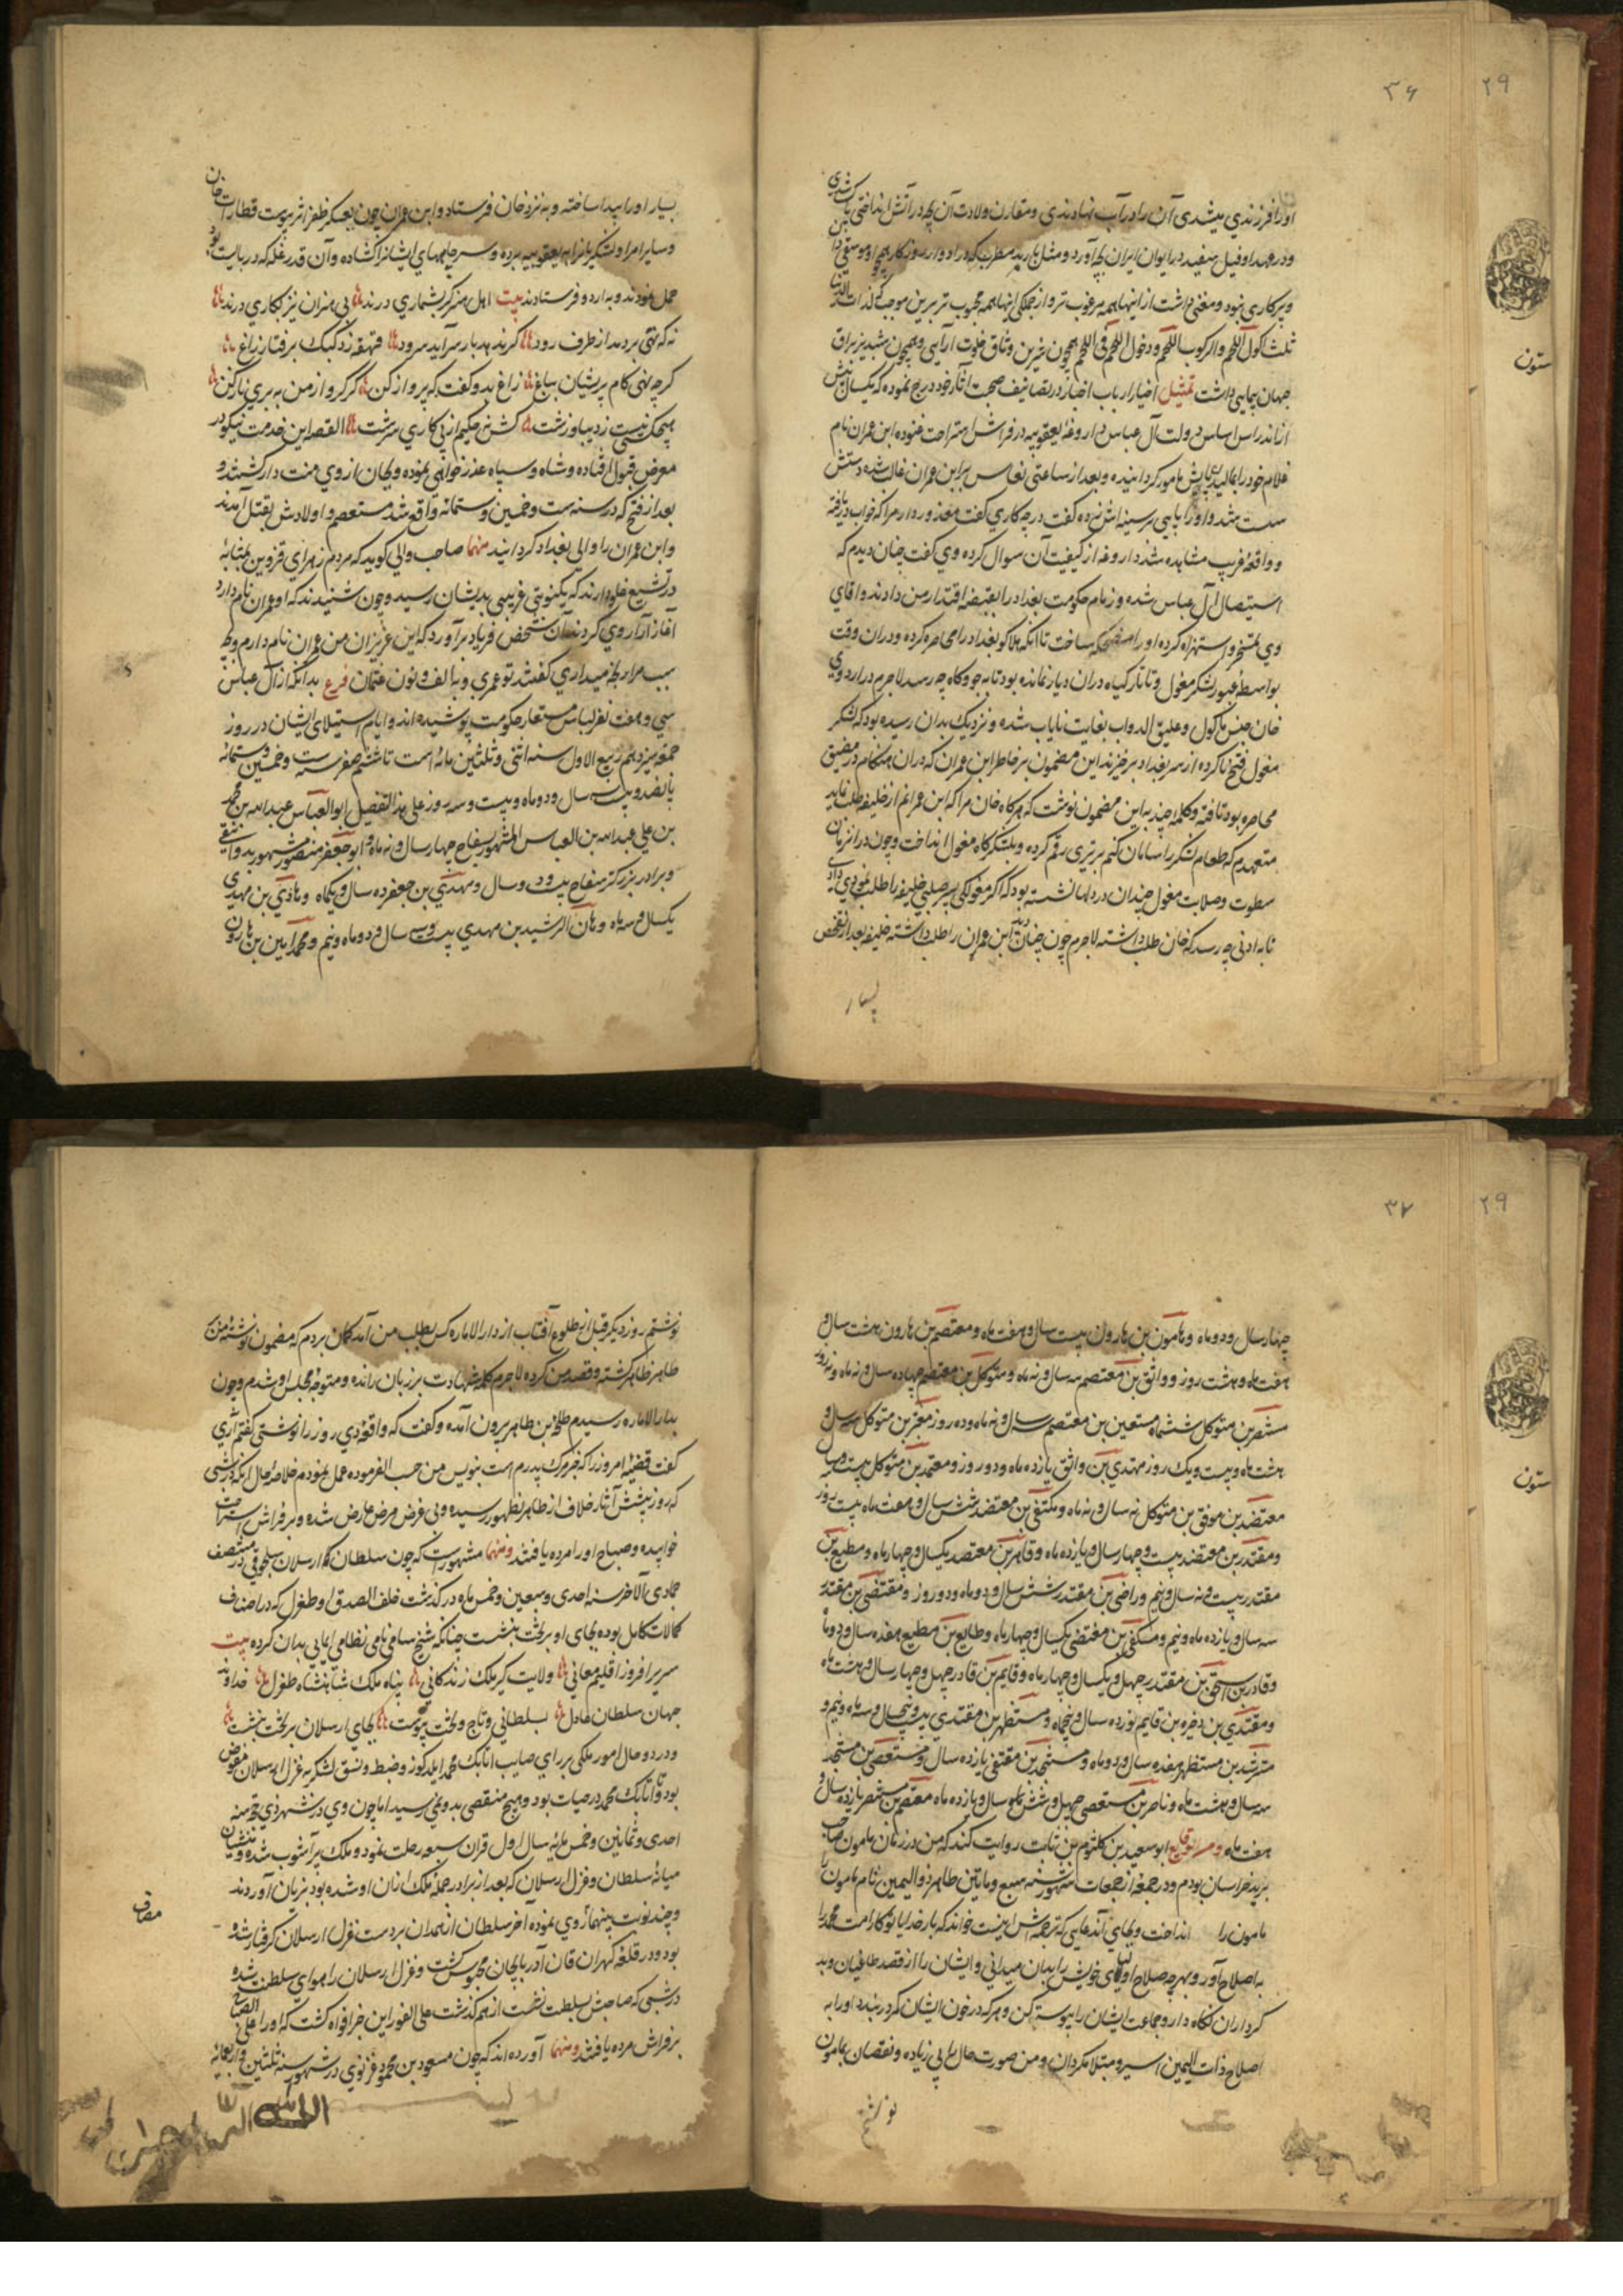 ۲۹
۳۶
ستون
او را فرزندی میشدی آن را در آب نهادندی و مقارن ولادت آن بچه در آتش انداختی تا کشتندی
و در عهد او فیل سفید در ایوان ایران بچه آورد و مثل باربد مطربی که در ادوار روزگار همچو او موسیقی دان
و پرکاری نبود و مغنی داشت از اینها همه مرغوب تر و از جملگی اینها همه محبوب تر برین موجب که لذات الدنیا
ثلث اکل اللحم والرکوب اللحم و دخول اللحم فی اللحم همچون شیرین وثاق خلوت آرایی و همچون شبدیز براق
جهان پیمایی داشت تمثیل اخیار ارباب اخبار در تصانیف صحت آثار خود درج نموده که یکسال پیش
از اندراس اساس دولت آل عباس داروغه یعقوبیه در فراش استراحت غنوده ابن عمران نام
غلام خود را بمالیدن پایش مامور گردانیده و بعد از ساعتی نعاس بر ابن عمران غالب شده دستش
سست شد و او را پایی بر سینه اش زده گفت در چه کاری گفت معذور دار مرا که خواب دریافته
و واقعهٔ غریب مشاهده شد داروغه از کیفیت آن سوال کرده وی گفت چنان دیدم که
استیصال آل عباس شده و زمام حکومت بغداد را بقبضه اقتدار من دادند و آقای
وی بتمسخر و استهزاء کرده او را مضحکه ساخت تا آنکه هلاکو بغداد را محاصره کرده و دران وقت
بواسطهٔ عبور لشکر مغول و تاتار گیاه دران دیار نمانده بود تا به جو و کاه چه رسد لاجرم در اردوی
خان جنس مأکول و علیق الدواب بغایت نایاب شده و نزدیک بدان رسیده بود که لشکر
مغول فتح ناکرده از سر بغداد برخیزند این مضمون بر خاطر ابن عمران که دران هنگام در مضیق
محاصره بود تافته و کلمه چند به این مضمون نوشت که هرگاه خان مرا که ابن عمرانم از خلیفه طلب نماید
متعهدم که طعام لشکر را سامان کنم بر تیری رقم کرده و بلشکرگاه مغول انداخت و چون در آن زمان
سطوت و صلابت مغول چندان در دلها نشسته بود که اگر مغولکی پسر صلبی خلیفه را طلب نمودی دادی
تا به ادنی چه رسد که خان طلب داشته لاجرم چون چنان دید ابن عمران را طلب داشته خلیفه بعد از تفحص
بسیار
بسیار او را پیدا ساخته و به نزد خان فرستاد و ابن عمران چون بعسکر ظفر اثر پیوست قطارات خان
و سایر امرا و لشکریانرا به یعقوبیه برده و سر چاههای ایشانرا گشاده و آن قدر غله که در بایست بود
حمل نمودند و به اردو فرستادند بیت اهل هنر گر بشماری درند بی هنران نیز بکاری درند
نه که نهی بر دمد از طرف رود گر نه هدهد بار سر آید سرود قهقهه زد کبک بر فتار زاغ
گرچه نهی گام پریشان بباغ زاغ بدو گفت که پرواز کن گر گرو از من به بری ناز کن
هیچکس نیست ز دیبا و زشت کش نه حکیم از پی کاری سرشت القصه این خدمت نیکو در
معرض قبول افتاده و شاه و سپاه عذر خواهی نموده و بجان از وی منت دار گشتند و
بعد از فتح که در سنه ست و خمسین و ستمائه واقع شد مستعصم و اولادش بقتل آمدند
و ابن عمران را والی بغداد گردانیدند منها صاحب والی گوید که مردم زهرای قزوین بمثابهٔ
در تشیع غلو دارند که یکنوبتی غریبی بدیشان رسید و چون شنیدند که او عمران نام دارد
آغاز آزار وی کردند آن شخص فریاد برآورد که این عزیزان من عمران نام دارم و بچه
سبب مرا رنجه میدارید گفتند تو عمری و به الف و نون عثمان فرع بدانکه از آل عباس
سی و هفت نفر لباس مستعار حکومت پوشیده اند و ایام استیلای ایشان در روز
جمعه سیزدهم ربیع الاول سنه اثنی و ثلثین مائه است تا ششم صفر سنه ست و خمسین و ستمائه
پانصد و بیست سال و دو ماه و بیست و سه روز علی هذا التفصیل ابو العباس عبدالله بن محمد
بن علی عبدالله بن العباس المشهور بسفاح چهار سال و نه ماه و ابو جعفر منصور مشهور بدوانیقی
و برادر بزرگتر سفاح بیست و دو سال و مهدی بن جعفر ده سال و یکماه و هادی بن مهدی
یکسال و سه ماه و هارون الرشید بن مهدی بیست و سه سال و دو ماه و نیم و محمد امین بن هارون
۲۹
۳۷
ستون
چهار سال و دو ماه و مأمون بن هارون بیست سال و هفت ماه و معتصم بن هارون هشت سال و
هفت ماه و هشت روز و واثق بن معتصم سه سال و نه ماه و متوکل بن معتصم چهارده سال و نه ماه و نه روز
منتصر بن متوکل شش ماه مستعین بن معتصم سه سال و نه ماه و ده روز معتز بن متوکل سه سال و
هشت ماه و بیست و یک روز مهتدی بن واثق یازده ماه و دو روز و معتمد بن متوکل بیست و سه سال
معتضد بن موفق بن متوکل نه سال و نه ماه و مکتفی بن معتضد شش سال و هفت ماه بیست روز
و مقتدر بن معتضد بیست و چهار سال و یازده ماه و قاهر بن معتضد یکسال و چهار ماه و مطیع بن
مقتدر بیست و نه سال و نیم و راضی بن مقتدر شش سال و دو ماه و دو روز و مقتضی بن مقتدر
سه سال و یازده ماه و نیم و مستکفی بن مقتضی یکسال و چهار ماه و طایع بن مطیع هفده سال و دو ماه
و قادر بن اسحق بن مقتدر چهل و یکسال و چهار ماه و قایم بن قادر چهل و چهار سال و هشت ماه
و مقتدی بن ذخیره بن قایم نوزده سال و پنجماه و مستظهر بن مقتدی بیست و پنجسال و سه ماه و نیم و
مسترشد بن مستظهر هفده سال و دو ماه و مستنجد بن مقتفی یازده سال و مستعصی بن مستنجد
سه سال و هشت ماه و ناصر بن مستعصی چهل و شش سال و یازده ماه معتصم بن مستنصر یازده سال و
هفت ماه و من الوقایع ابو سعید بن کلثوم بن ثابت روایت کند که من در زمان مامون صاحب
برید خراسان بودم و در جمعه از جمعات شهور سنه سبع و ماتین طاهر ذو الیمین نام مامون را
مامون را انداخت و بجای آن دعایی که ترجمه اش اینست خواند که بار خدایا تو کار امت محمد را
به اصلاح آور و بهر چه صلاح اولیای خویش را بدان میدانی و ایشان را از قصد طاغیان و بد
کرداران نگاه دار و جماعت ایشان را پیوسته کن و هر که در خون ایشان کمر در بندد او را به
اصلاح ذات الیمین اسیر و مبتلا گردان و من صورت حال را بی زیاده و نقصان بمامون
نوشتم
نوشتم روز دیگر قبل از طلوع آفتاب از دار الاماره کس بطلب من آمد گمان بردم که مضمون نوشتهٔ من بر
طاهر ظاهر گشته و قصد من کرده لاجرم کلمه شهادت بر زبان رانده و متوجه مجلس او شدم و چون
بدار الاماره رسیدم طلحه بن طاهر بیرون آمده و گفت که واقعهٔ دی روز را نوشتی گفتم آری
گفت قضیهٔ امروز را که خبر مرگ پدرم است بنویس من حسب الفرموده عمل نمودم خلاصه حال آنکه در شبی
که روز پیشش آثار خلاف از طاهر بظهور رسیده و بی غرض مرض عارض شده و بر فراش استراحت
خوابیده و صباح او را مرده یافتند و منها مشهور است که چون سلطان ارسلان سلجوقی در منتصف
جمادی الآخر سنه احدی و سبعین و خمس ماه درگذشت خلف الصدق او طغرل که در اصناف
کمالات کامل بوده بجای او بر تخت بنشست چنانکه شیخ سامی نامی نظامی ایمایی بدان کرده بیت
سریر افروز اقلیم معانی ولایت گیر ملک زندگانی پناه ملک شاهنشاه طغرل خداوند
جهان سلطان عادل بسلطانی و تاج و تخت پیوست بجای ارسلان بر تخت بنشست
و در دو حال امور ملکی بر رای صایب اتابک محمد ایلدکوز و ضبط و نسق لشکر به قزل ارسلان مفوض
بود و تا اتابک محمد در حیات بود هیچ منقصی بدو نمی رسید اما چون وی در شهر ذی حجه سنه
احدی و ثمانین و خمس مائه سال اول قران سبعه رحلت نمود و ملک پر آشوب شده و منشیان
میانهٔ سلطان و قزل ارسلان که بعد از برادر جمله ملک ازان او شده بود بزبان آوردند
مصاف
و چند نوبت بینهما روی نموده آخر سلطان از همدان بر دست قزل ارسلان گرفتار شد و
بود و در قلعه کهران قان آذربایجان محبوس گشت و قزل ارسلان را هوای سلطنت شده
در شبی که صاحبش بسلطنت نشست از هم گذشت علی الفور این خبر افواه گشت که او را علی الصباح
بر فراش مرده یافتند و منها آورده اند که چون مسعود بن محمود غزنوی در شهور سنه ثلثین و اربعمائه